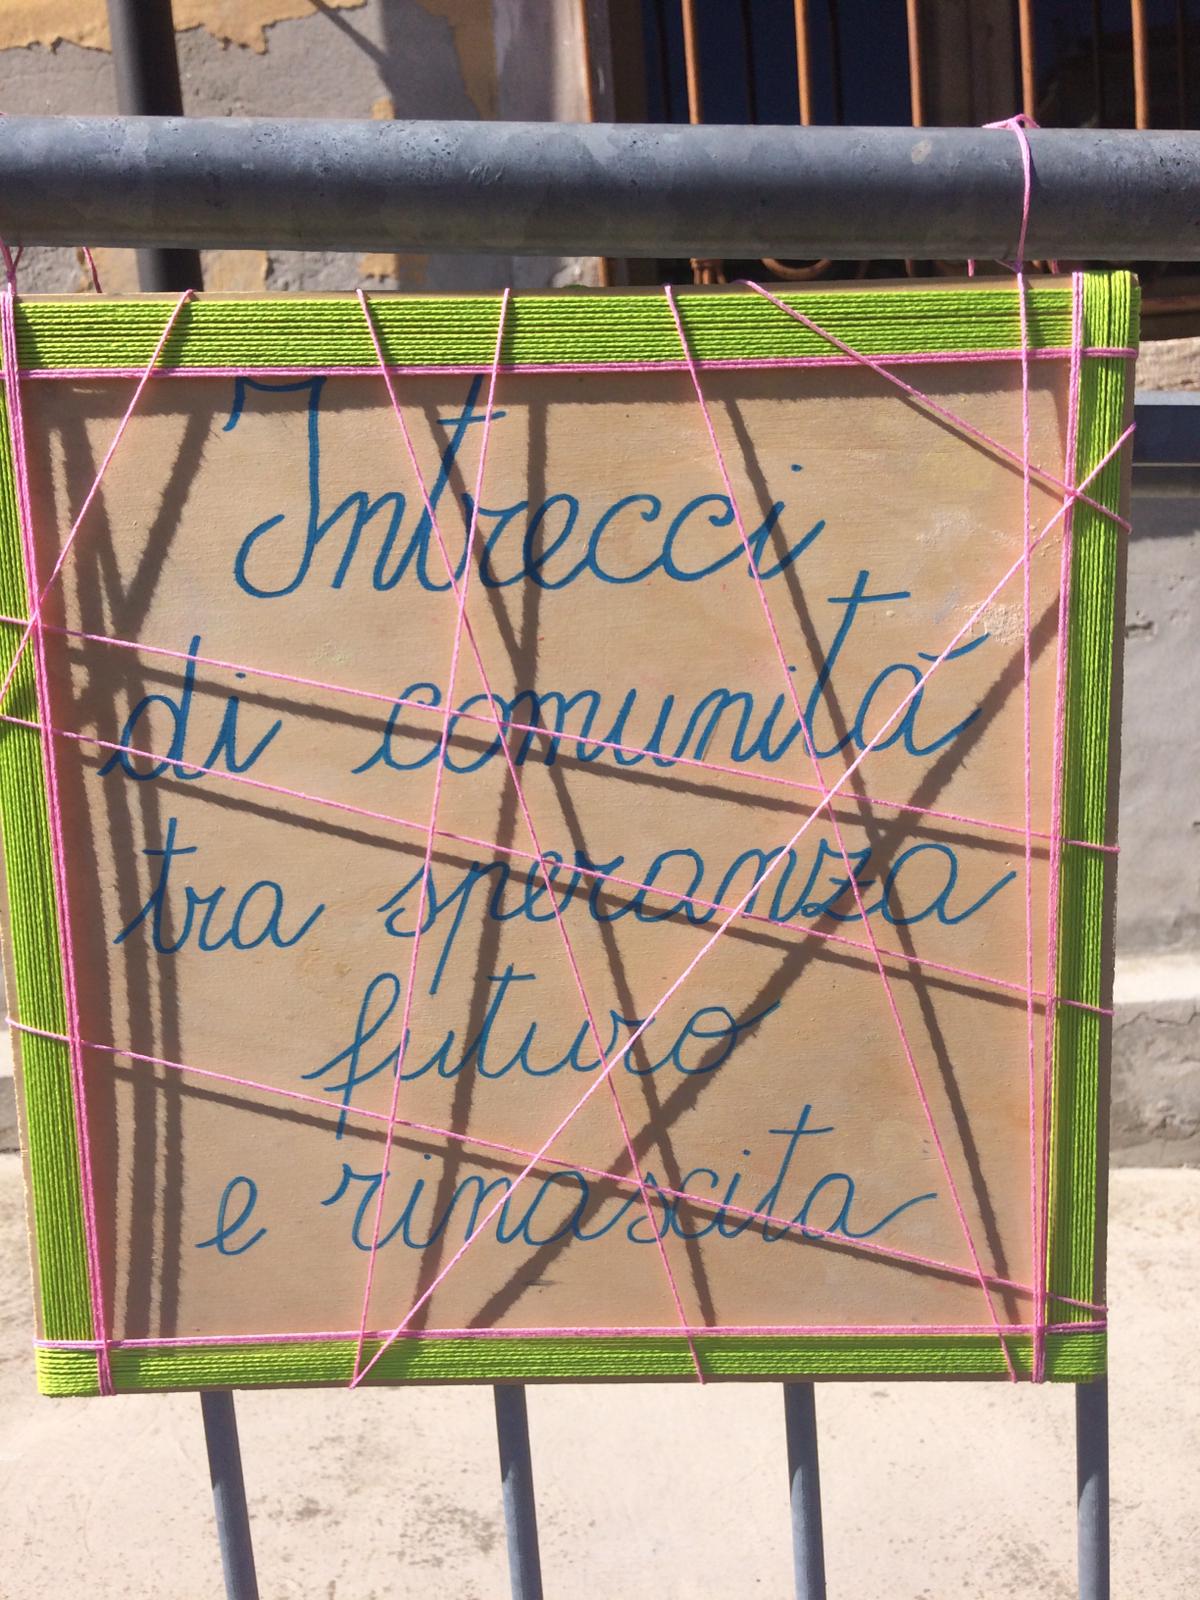 Intrecci
di comunità
tra speranza
futuro
e rinascita